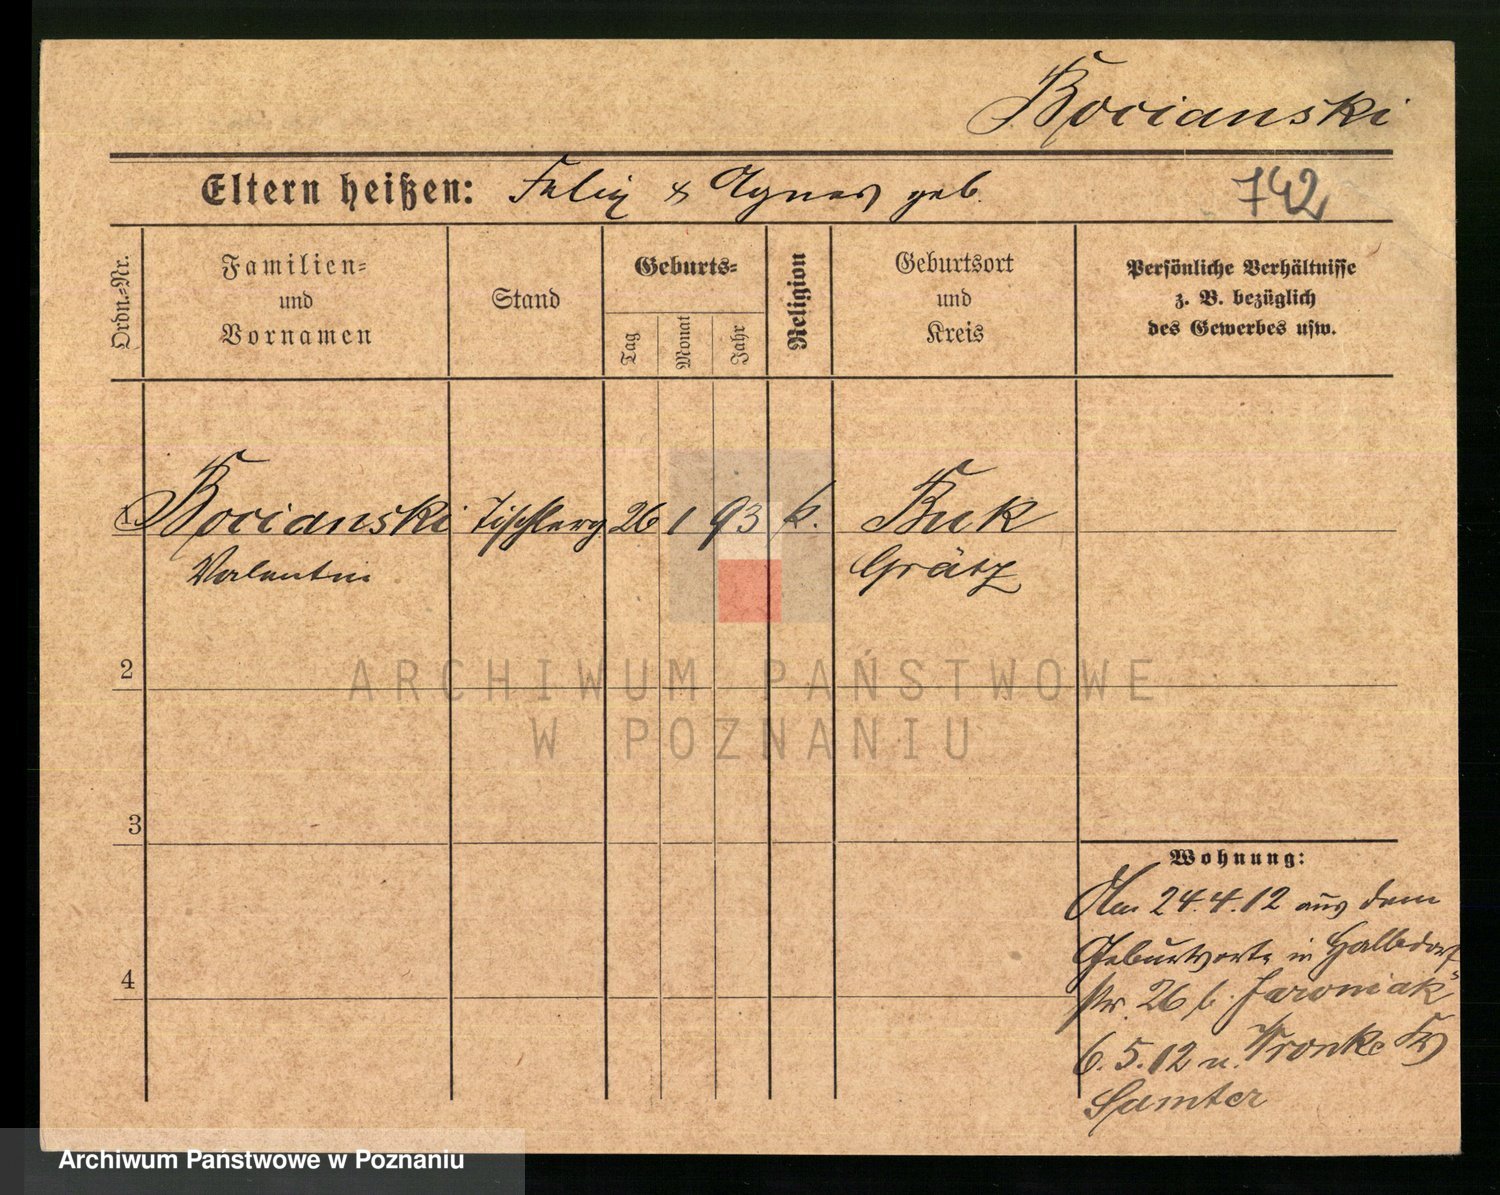 Bocianski
Eltern heißen: Felix & Agnes geb.
742
Ordn.-Nr.
Familien-
und
Vornamen
Stand
Geburts-
Tag
Monat
Jahr
Religion
Geburtsort
und
Kreis
Persönliche Verhältnisse
z. B. bezüglich
des Gewerbes usw.
1. Bocianski Tischlerg 26 1 93 k. Buk
Valentin Grätz
2
3
4
Wohnung:
Am 24.4.12 aus dem
Geburtsorte in Halbdorf
str. 26 b. Jaroniak
6.5.12 n. Wronke Kr
Samter
ARCHIWUM PAŃSTWOWE
W POZNANIU
Archiwum Państwowe w Poznaniu